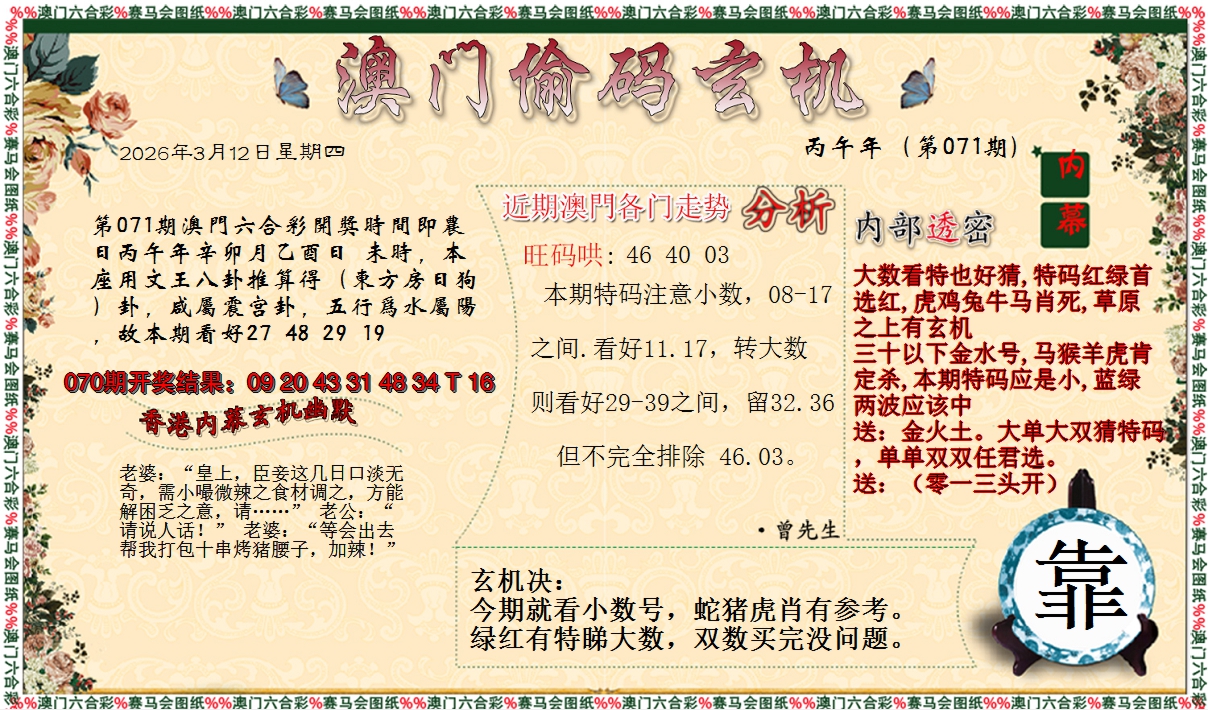 %%澳门六合彩%赛马会图纸%%澳门六合彩%赛马会图纸%%澳门六合彩%赛马会图纸%%澳门六合彩%赛马会图纸%%澳门六合彩%赛马会图纸%%澳门六合彩%赛马会图纸%%
澳门偷码玄机
2026年3月12日星期四
丙午年（第071期）
第071期澳門六合彩開獎時間即農
日丙午年辛卯月乙酉日 未時，本
座用文王八卦推算得（東方房日狗
）卦，咸屬震宫卦，五行爲水屬陽
，故本期看好27 48 29 19
070期开奖结果：09 20 43 31 48 34 T 16
香港内幕玄机幽默
老婆：“皇上，臣妾这几日口淡无
奇，需小嘬微辣之食材调之，方能
解困乏之意，请……” 老公：“
请说人话！” 老婆：“等会出去
帮我打包十串烤猪腰子，加辣！”
近期澳門各门走势 分析
旺码哄: 46 40 03
本期特码注意小数，08-17
之间.看好11.17，转大数
则看好29-39之间，留32.36
但不完全排除 46.03。
·曾先生
内部透密
内
幕
大数看特也好猜,特码红绿首
选红,虎鸡兔牛马肖死,草原
之上有玄机
三十以下金水号,马猴羊虎肯
定杀,本期特码应是小,蓝绿
两波应该中
送：金火土。大单大双猜特码
，单单双双任君选。
送：（零一三头开）
玄机决：
今期就看小数号，蛇猪虎肖有参考。
绿红有特睇大数，双数买完没问题。
靠
%%澳门六合彩%赛马会图纸%%澳门六合彩%赛马会图纸%%澳门六合彩%赛马会图纸%%澳门六合彩%赛马会图纸%%澳门六合彩%赛马会图纸%%澳门六合彩%赛马会图纸%%